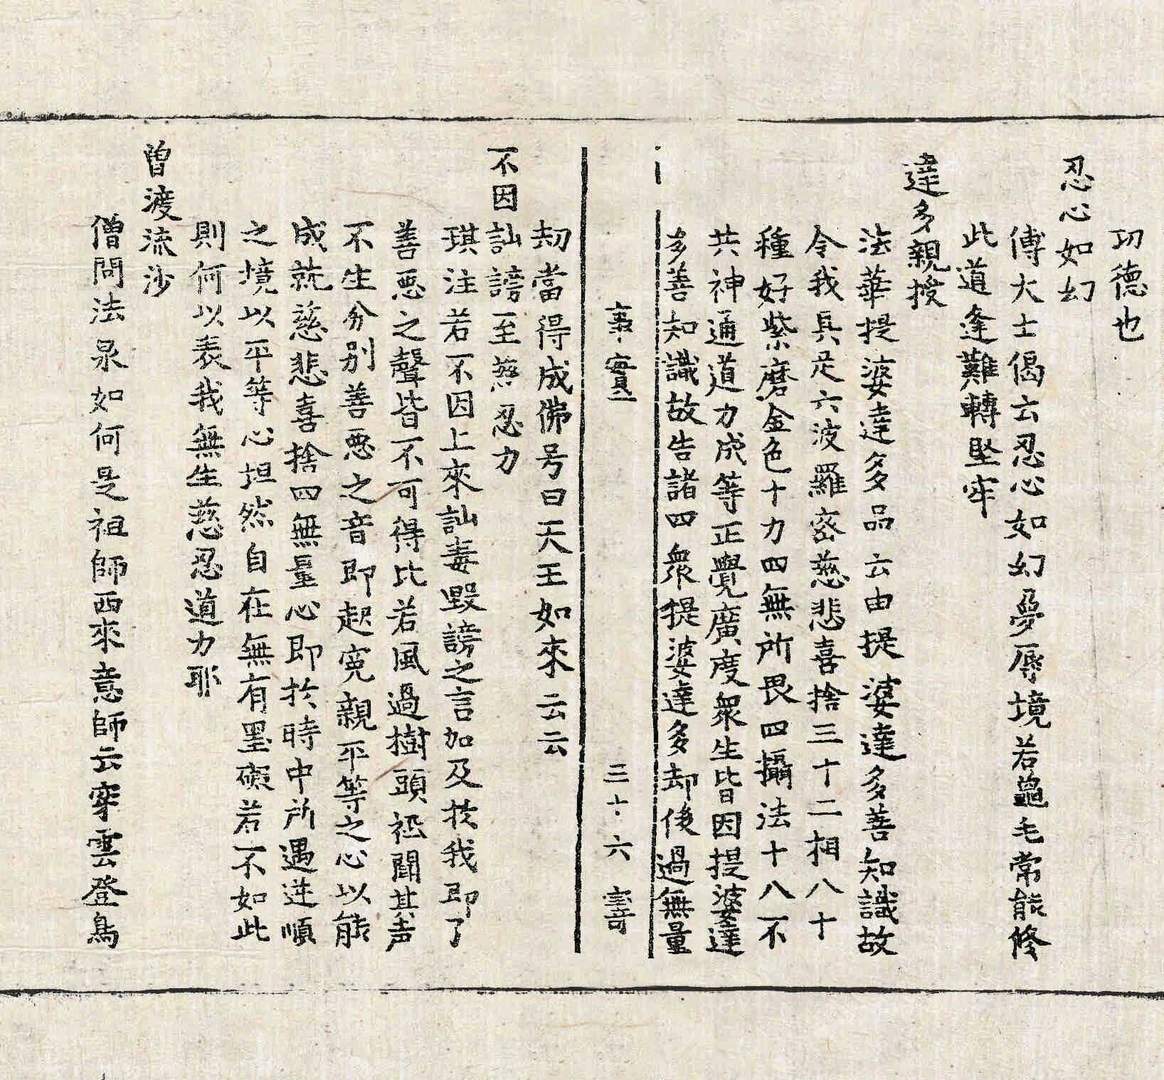 功德也
忍心如幻
傅大士偈云忍心如幻夢辱境若龜毛常能修
此道逢難轉堅牢
達多親授
法華提婆達多品云由提婆達多善知識故
令我具足六波羅密慈悲喜捨三十二相八十
種好紫磨金色十力四無所畏四攝法十八不
共神通道力成等正覺廣度衆生皆因提婆達
多善知識故告諸四衆提婆達多却後過無量
事實 三十六 寄
劫當得成佛号曰天王如來云云
不因訕謗至慈忍力
琪注若不因上來訕毒毀謗之言加及於我即了
善惡之聲皆不可得比若風過樹頭秖聞其声
不生分別善惡之音即起寃親平等之心以能
成就慈悲喜捨四無量心即於時中所遇逆順
之境以平等心坦然自在無有罣礙若不如此
則何以表我無生慈忍道力耶
曾渡流沙
僧問法泉如何是祖師西來意師云穿雲登鳥